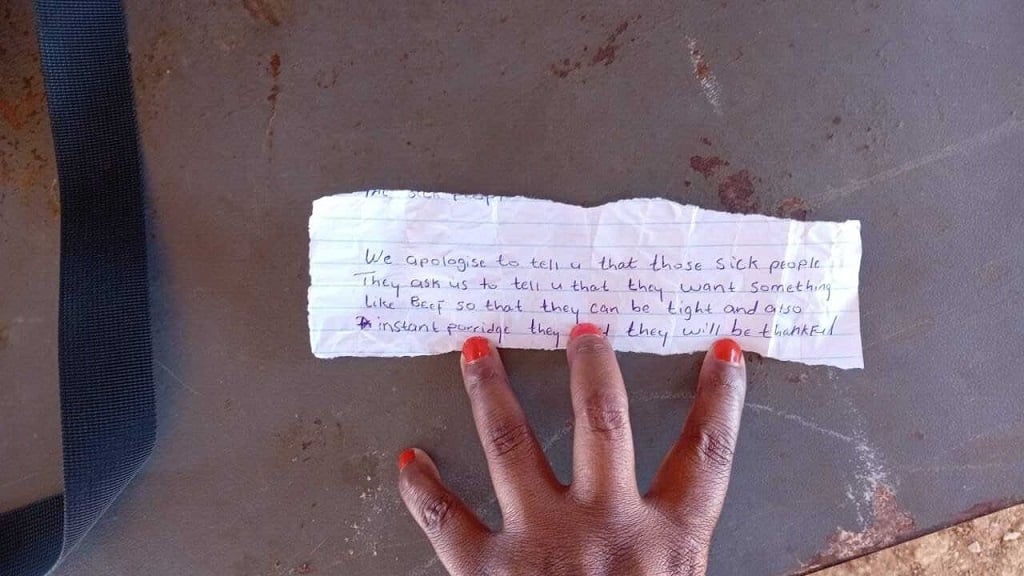 The sick peop
We apologise to tell u that those sick people
They ask us to tell u that they want something
Like Beef so that they can be tight and also
instant porridge they they will be thankful